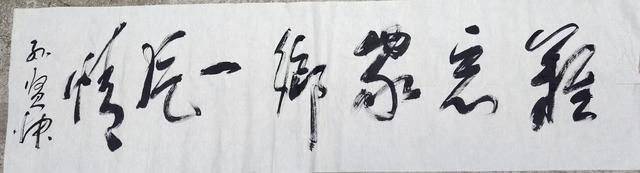 難忘家鄉一片情